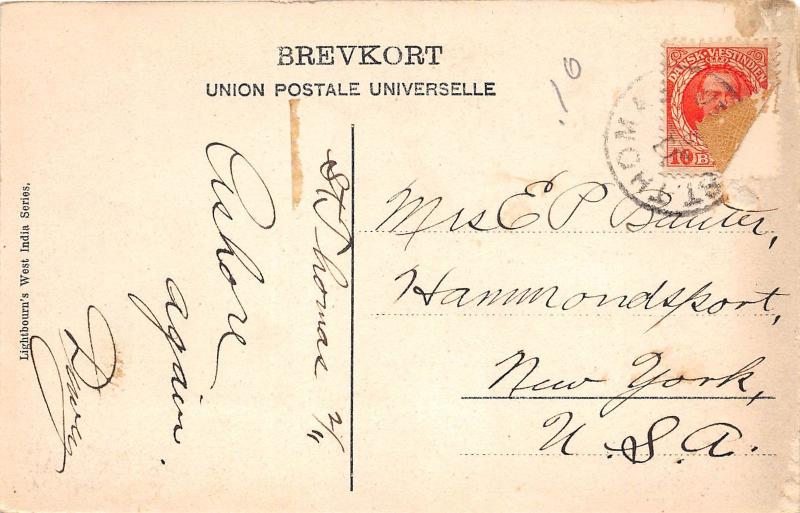 BREVKORT
UNION POSTALE UNIVERSELLE
.10
DANSK-VESTINDIEN
10 B
ST. THOMA
Lightbourn's West India Series.
St Thomas 2/11
Ashore
again.
Mrs E P
Hammondsport,
New York,
U.S.A.